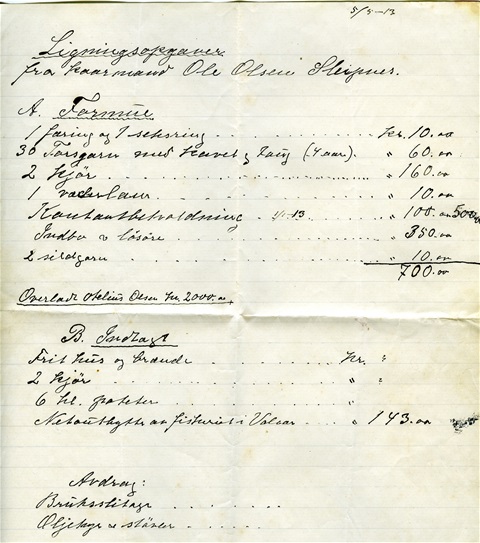 5/5-13
Ligningsopgaver
fra kaarmand Ole Olsen Sleipner.
A. Formue
1 færing og 1 seksring . . . . . . . . . . kr. 10.00
30 Torsgarn med kavel og taug (4 aar). " 60.00
2 kjör . . . . . . . . . . " 160.00
1 . . . . . . . . . . " 10.00
Kontantbeholdning 1/1-13 . . . . " 100.00 500.00
Indbo & lösöre . . . . . . . . . . " 350.00
2 sildgarn . . . . . . . . . . " 10.00
700.00
Overladt Olsen kr. 2000.00
B. Indtægt
Frit hus og brænde . . . . . . kr. "
2 kjör . . . . . . . . . . " "
6 hl. poteter . . . . . . . . "
Nettoutbytte av fiskeriet i . . . " 143.00
Avdrag:
Bruksslitage . . . . . . . .
Oljeklær & stövler . . . . . .